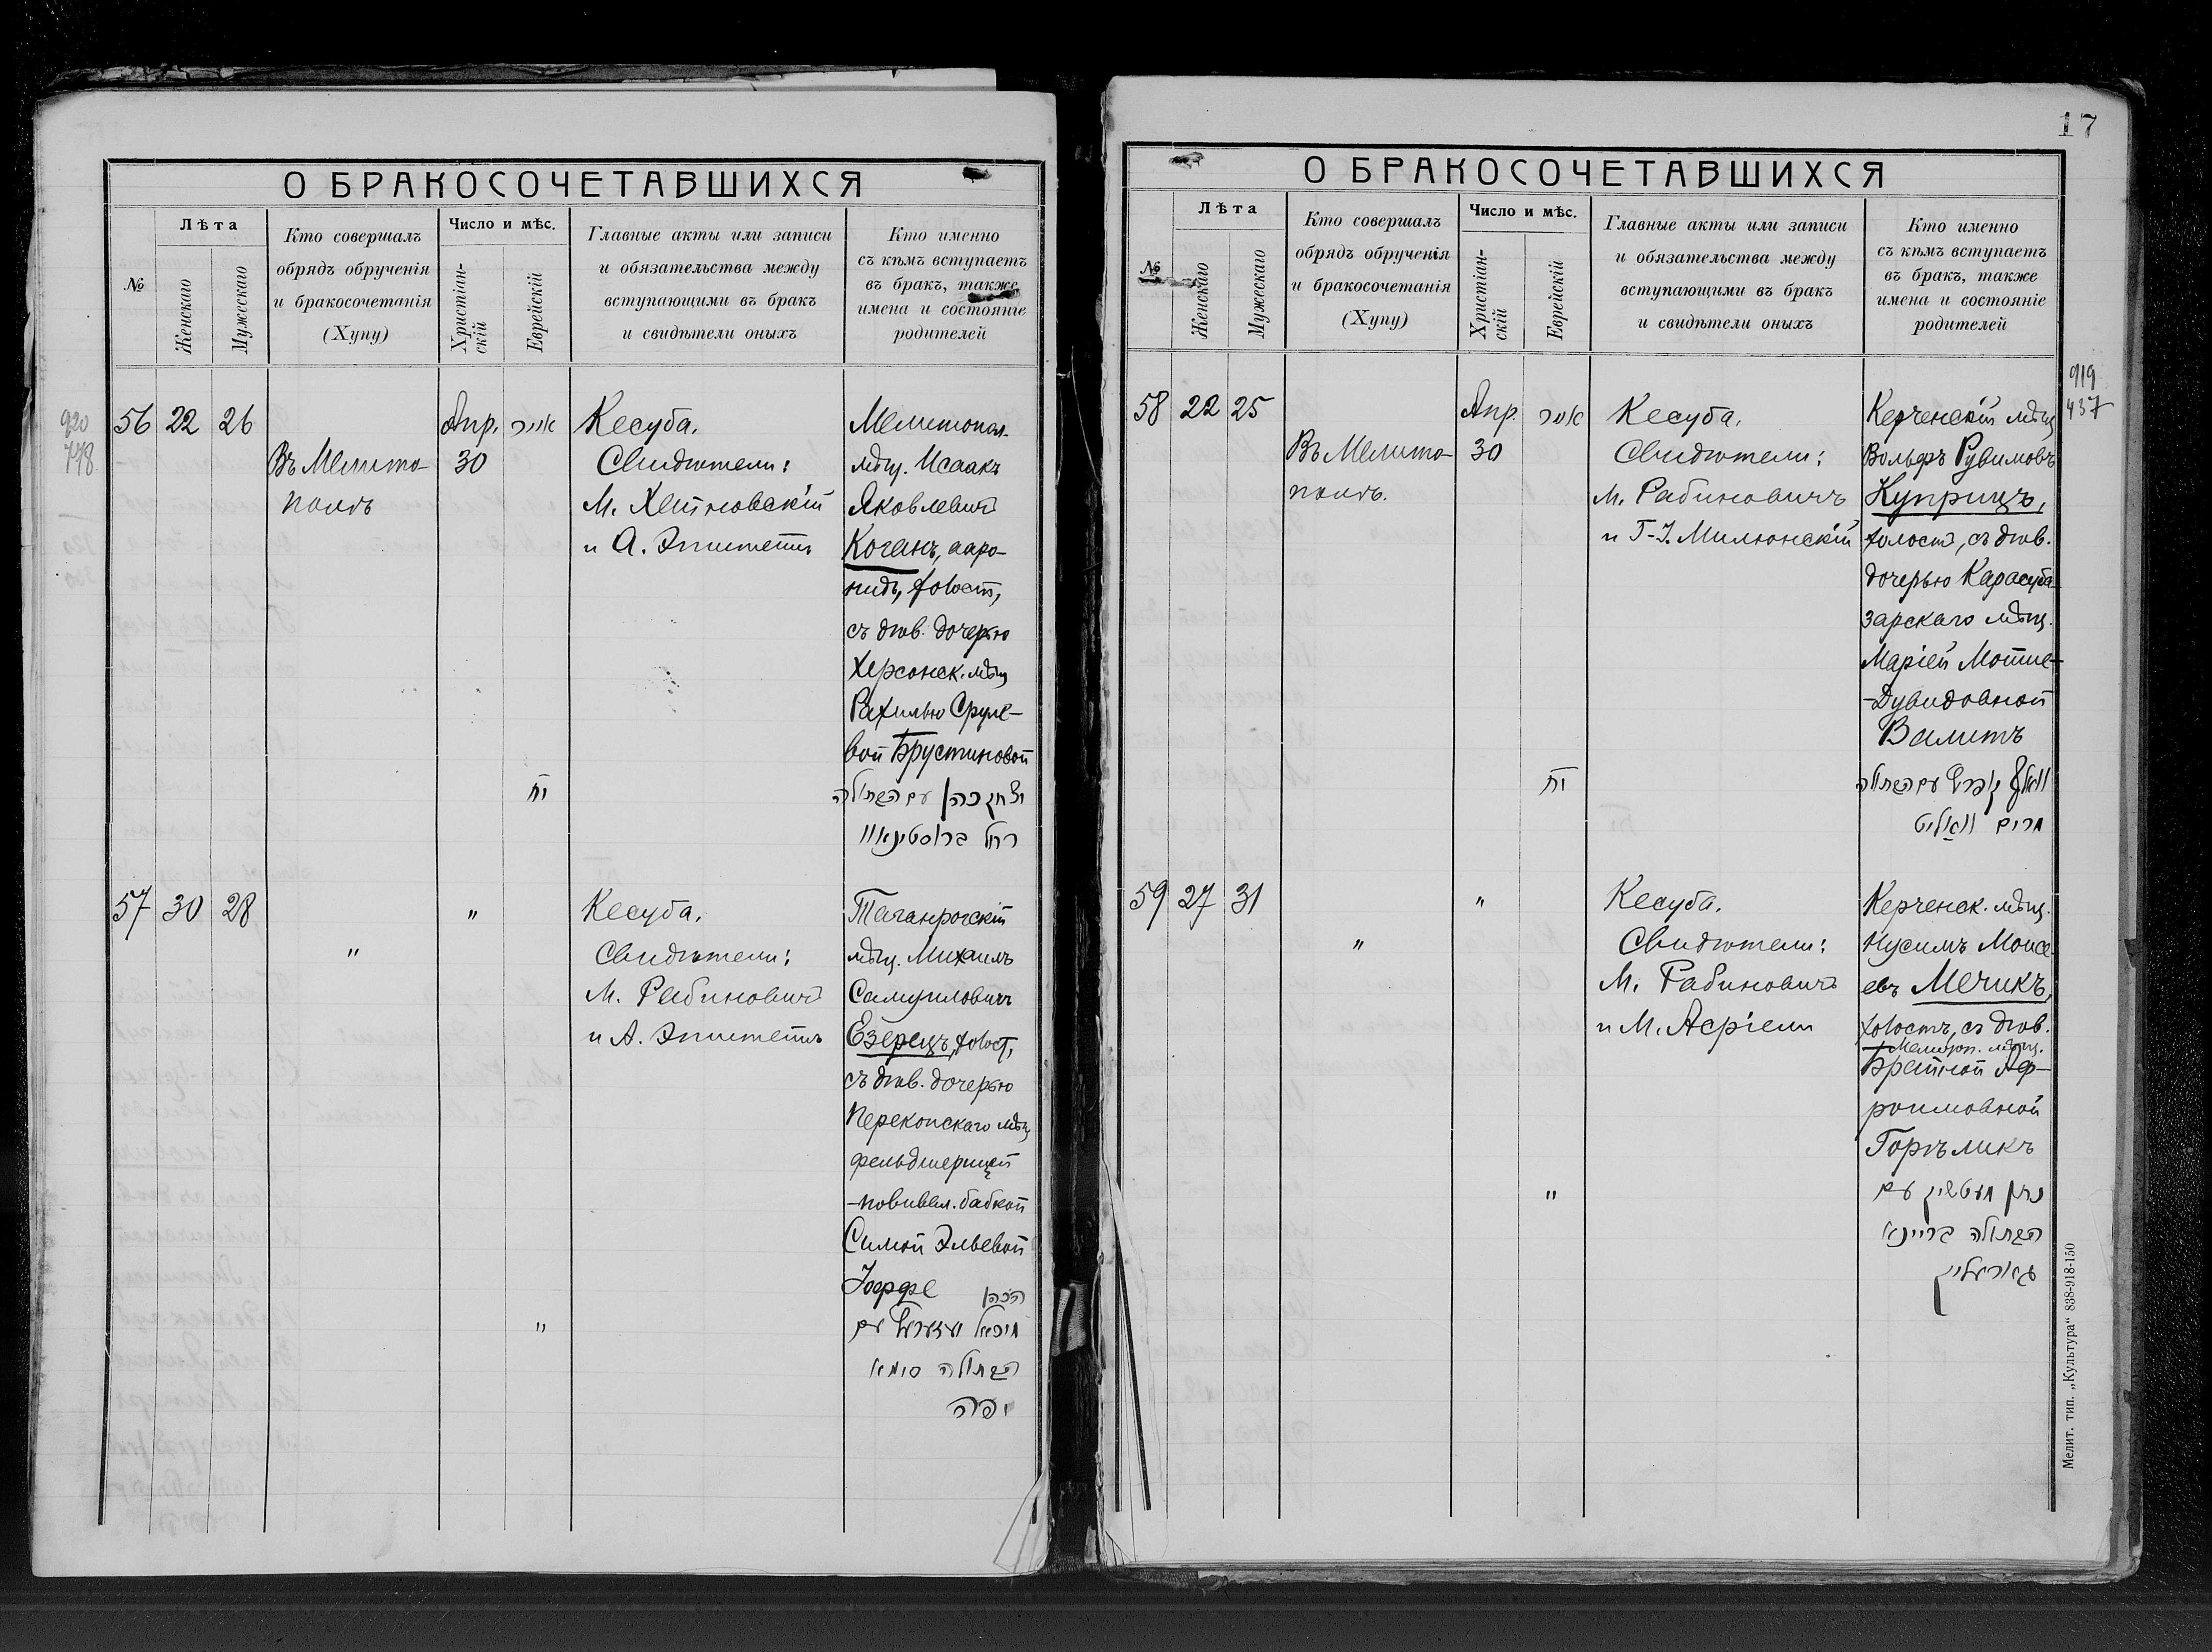 О БРАКОСОЧЕТАВШИХСЯ
№
Лѣта
Женскаго
Мужескаго
Кто совершалъ
обрядъ обрученія
и бракосочетанія
(Хупу)
Число и мѣс.
Христіан-
скій
Еврейскій
Главные акты или записи
и обязательства между
вступающими въ бракъ
и свидѣтели оныхъ
Кто именно
съ кѣмъ вступаетъ
въ бракъ, также
имена и состояніе
родителей
920
778
56 22 26
Въ Мелито-
полѣ
Апр.
30
אייר
יח
Кесуба.
Свидѣтели:
М.
и А. Эпитетъ
Мелитопол.
мѣщ. Исаакъ
Яковлевичъ
Коганъ, ааро-
нидъ, холост,
съ дѣв. дочерью
Херсонск. мѣщ
Рахилью Сруле-
вой Брустиновой
יצחק כהן עם הבתולה
רחל ברוסטינאוו
57 30 28
"
"
"
Кесуба.
Свидѣтели:
М. Рабиновичъ
и А. Эпитетъ
Таганрогскій
мѣщ. Михаилъ
Самуиловичъ
Езерецъ, холост,
съ дѣв. дочерью
Перекопскаго мѣщ
фельдшерицей
-повивал. бабкой
Симой Эльевой
Іоффе
הכהן
מיכאל יעזערעץ עם
הבתולה סימא
יפה
17
О БРАКОСОЧЕТАВШИХСЯ
№
Лѣта
Женскаго
Мужескаго
Кто совершалъ
обрядъ обрученія
и бракосочетанія
(Хупу)
Число и мѣс.
Христіан-
скій
Еврейскій
Главные акты или записи
и обязательства между
вступающими въ бракъ
и свидѣтели оныхъ
Кто именно
съ кѣмъ вступаетъ
въ бракъ, также
имена и состояніе
родителей
919
437
58 22 25
Въ Мелито-
полѣ.
Апр.
30
אייר
יח
Кесуба.
Свидѣтели:
М. Рабиновичъ
и Г-І. Милюнскій
Керченскій мѣщ
Вольфъ Рувимовъ
Куприцъ,
холост, съ дѣв.
дочерью Карасуба-
зарскаго мѣщ.
Маріей Мотше-
-Дувидовной
Валитъ
וואלף קופריץ עם הבתולה
מרים וואליט
59 27 31
"
"
"
Кесуба.
Свидѣтели:
М. Рабиновичъ
и М. Асріели
Керченск. мѣщ.
Нусимъ Моисе
евъ Мечикъ,
холостъ, съ дѣв.
Мелитоп. мѣщ.
Брейной Аф-
роимовной
Горѣликъ
נתן מעטשיק עם
הבתולה בריינא
גאורעליק
Мелит. тип. „Культура“ 838-918-150